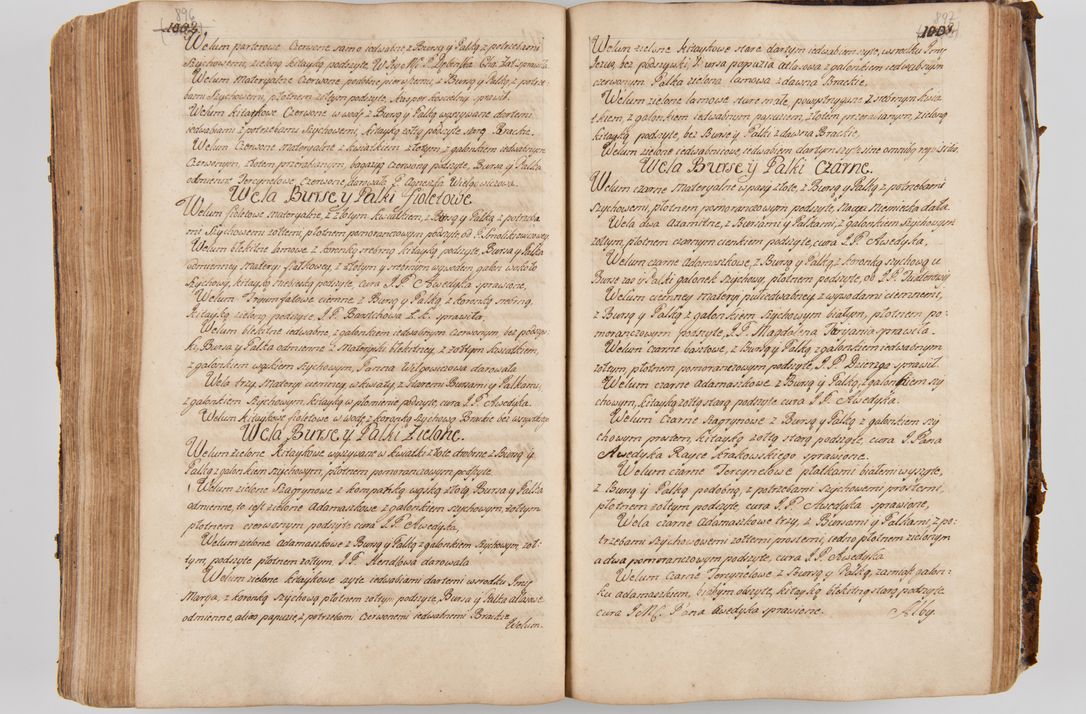 896
1002
Welum parterowe Czerwone samo iedwabne z Bursą y Palką, z potrzebami
Szychowemi, zieloną kitayką podszyte
Welum materyalne Czerwone podobne pierwszemu, z Bursą y Palką, z potrze-
bami szychowemi, płotnem żołtym podszyte, Kasper Koscielny sprawił.
Welum kitaykowe Czerwone w wodę z Bursą y Palką wyszywane dartemi
iedwabiami z potrzebami Szychowemi, kitayką żołtą podszyte starą Brackie.
Welum Czerwone materyalne z kwiatkiem złotym, z galonkiem iedwabnym
Czerwonym, złotem przerabianym, bagazyą czerwoną podszyte, Bursa y Palka
odmienne Tercynelowe, Czerwone, darowała P. Agneszka Wielogłowszowa.
Wela Burse y Palki fioletowe.
Welum fioletowe materyalne, z złotym kwiatkiem, z Bursą y Palką z potrzeba
mi Szychowemi żołtemi, płotnem pomoranczowym podszyte, od P.
Welum błękitne lamowe z koronką srebrną kitayką podszyte, Bursa y Palka
odmienney materyi fiałkowey, z złotym y srebrnym wywodem galon wokoło
szychowy, kitayką niebieską podszyte, cura J.P. Awedyka sprawione,
Welum Tryumfalowe cienne, z Bursą y Palką z koronką srebrną,
kitayką zieloną podszyte J.P. Bartschowa z. k. sprawiła,
Welum błękitne iedwabne, z galonkiem iedwabnym czerwonym, bez podszew-
ki, Bursa y Palka odmienne z materyiki błękitney, z żołtym kwiatkiem,
z galonkiem wąskim szychowym, Panna Wilgowiczowa darowała
Wela trzy materyi cienney w kwiaty, z staremi Bursami y Palkami,
z galonkiem szychowym, kitayką w płomienie podszyte, cura J.P. Awedyka.
Welum kitaykowe fioletowe w wodę z koronką szychową Brackie bez
Wela Burse y Palki Zielone.
Welum zielone kitaykowe wyszywane w kwiatki złote drobne z Bursą y
Palką z galonkiem szychowym, płotnem pomoranczowym podszyte.
Welum zielone Szagrynowe z kompankką wąską złotą, Bursa y Palka
odmienne, to iest zielone Adamaszkowe z galonkiem szychowym, żołtym
płotnem czerwonym podszyte cura J.P. Awedyka,
Welum zielone adamaszkowe z Bursą y Palką z galonkiem szychowym żoł-
tym, podszyte płotnem żołtym, J.P. Hendlowa darowała
Welum zielone kitaykowe szyte iedwabiami dartemi wsrodku Imię
Marya, z koronką szychową płotnem żołtym podszyte, Bursa y Palka atłasowe
odmienne, albo papuzie, z potrzebami czerwonemi iedwabnemi Brackie
Welum
892
1003
Welum zielone kitaykowe stare dartym iedwabiem szyte, wsrodku Imię
Jezus, bez podszywki, Bursa papuzia atłasowa z galonkiem iedwabnym
czerwonym Palka zielona lamowa z dawna Brackie.
Welum zielone lamowe stare małe, powystrzygane z srebrnym kwia
tkiem, z galonkiem iedwabnym papuzim, złotem przerabianym, zieloną
kitayką podszyte, bez Bursy y Palki z dawna Brackie,
Welum zielone iedwabnicowe, iedwabiem dartym szyte
Wela Burse y Palki Czarne.
Welum czarne materyalne w pasy złote, z Bursą y Palką z potrzebami
szychowemi, płotnem pomoranczowym podszyte, Niemiecka dała.
Wela dwa axamitne, z Bursami y Palkami, z galonkiem szychowym
żołtym, płotnem czarnym cienkim podszyte, cura J.P. Awedyka,
Welum czarne adamaszkowe, z Bursą y Palką, z koronką szychową u
Burse zas y Palki galonek szychowy, płotnem podszyte, od J.P.
Welum cienney materyi pułiedwabney z wywodami ciemnemi,
z Bursą y Palką z galonkiem szychowym białym, płotnem po-
moranczowym podszyte, J.P. Magdalena Taripania sprawiła.
Welum czarne bastowe, z Bursą y Palką z galonkiem iedwabnym
żołtym, płotnem pomoranczowym podszyte, J.P. Dzierzgo sprawił.
Welum czarne adamaszkowe z Bursą y Palką, z galonkiem szy
chowym, kitayką żołtą starą podszyte cura J.P. Awedyka.
Welum Czarne Szagrynowe z Bursą y Palką z galonkiem szy
chowym prostem, kitayką żołtą starą podszyte, cura J Pana
Awedyka Rayce Krakowskiego sprawione.
Welum czarne Tercynelowe płatkami białemi wyszyte,
z Bursą y Palką podobną, z potrzebami szychowemi prostemi,
płotnem żołtym podszyte, cura J.P. Awedyka sprawione,
Wela czarne adamaszkowe trzy, z Bursami y Palkami, z po-
trzebami szychowemi żołtemi prostemi, iedno płotnem zielonym
a dwa pomoranczowym podszyte, cura J.P. Awedyka
Welum Czarne Tercynelowe z Bursą y Palką, zamiast galon-
ku adamaszkiem, białym obszyte, kitayką błękitną starą podszyte
cura J.M. Pana Awedyka sprawione.
Alby